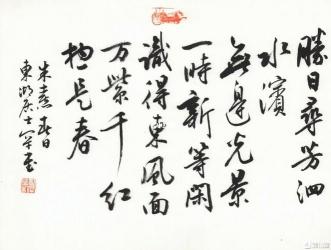 勝日尋芳泗
水濱
無邊光景
一時新等閑
識得東風面
万紫千紅
總是春
朱熹春日
東湖居士